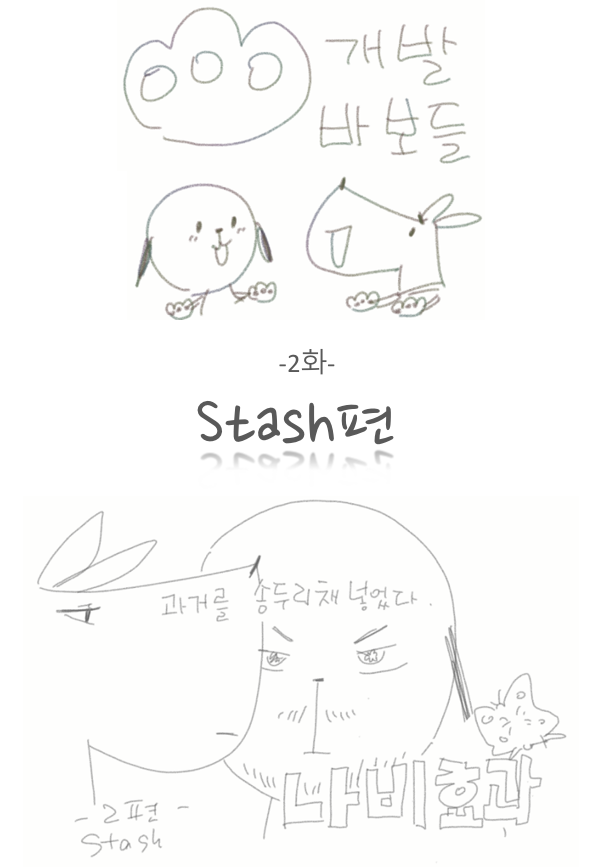 개발
바보들
-2화-
Stash편
과거를 송두리채 넣었다.
나비효과
- 2편 -
Stash